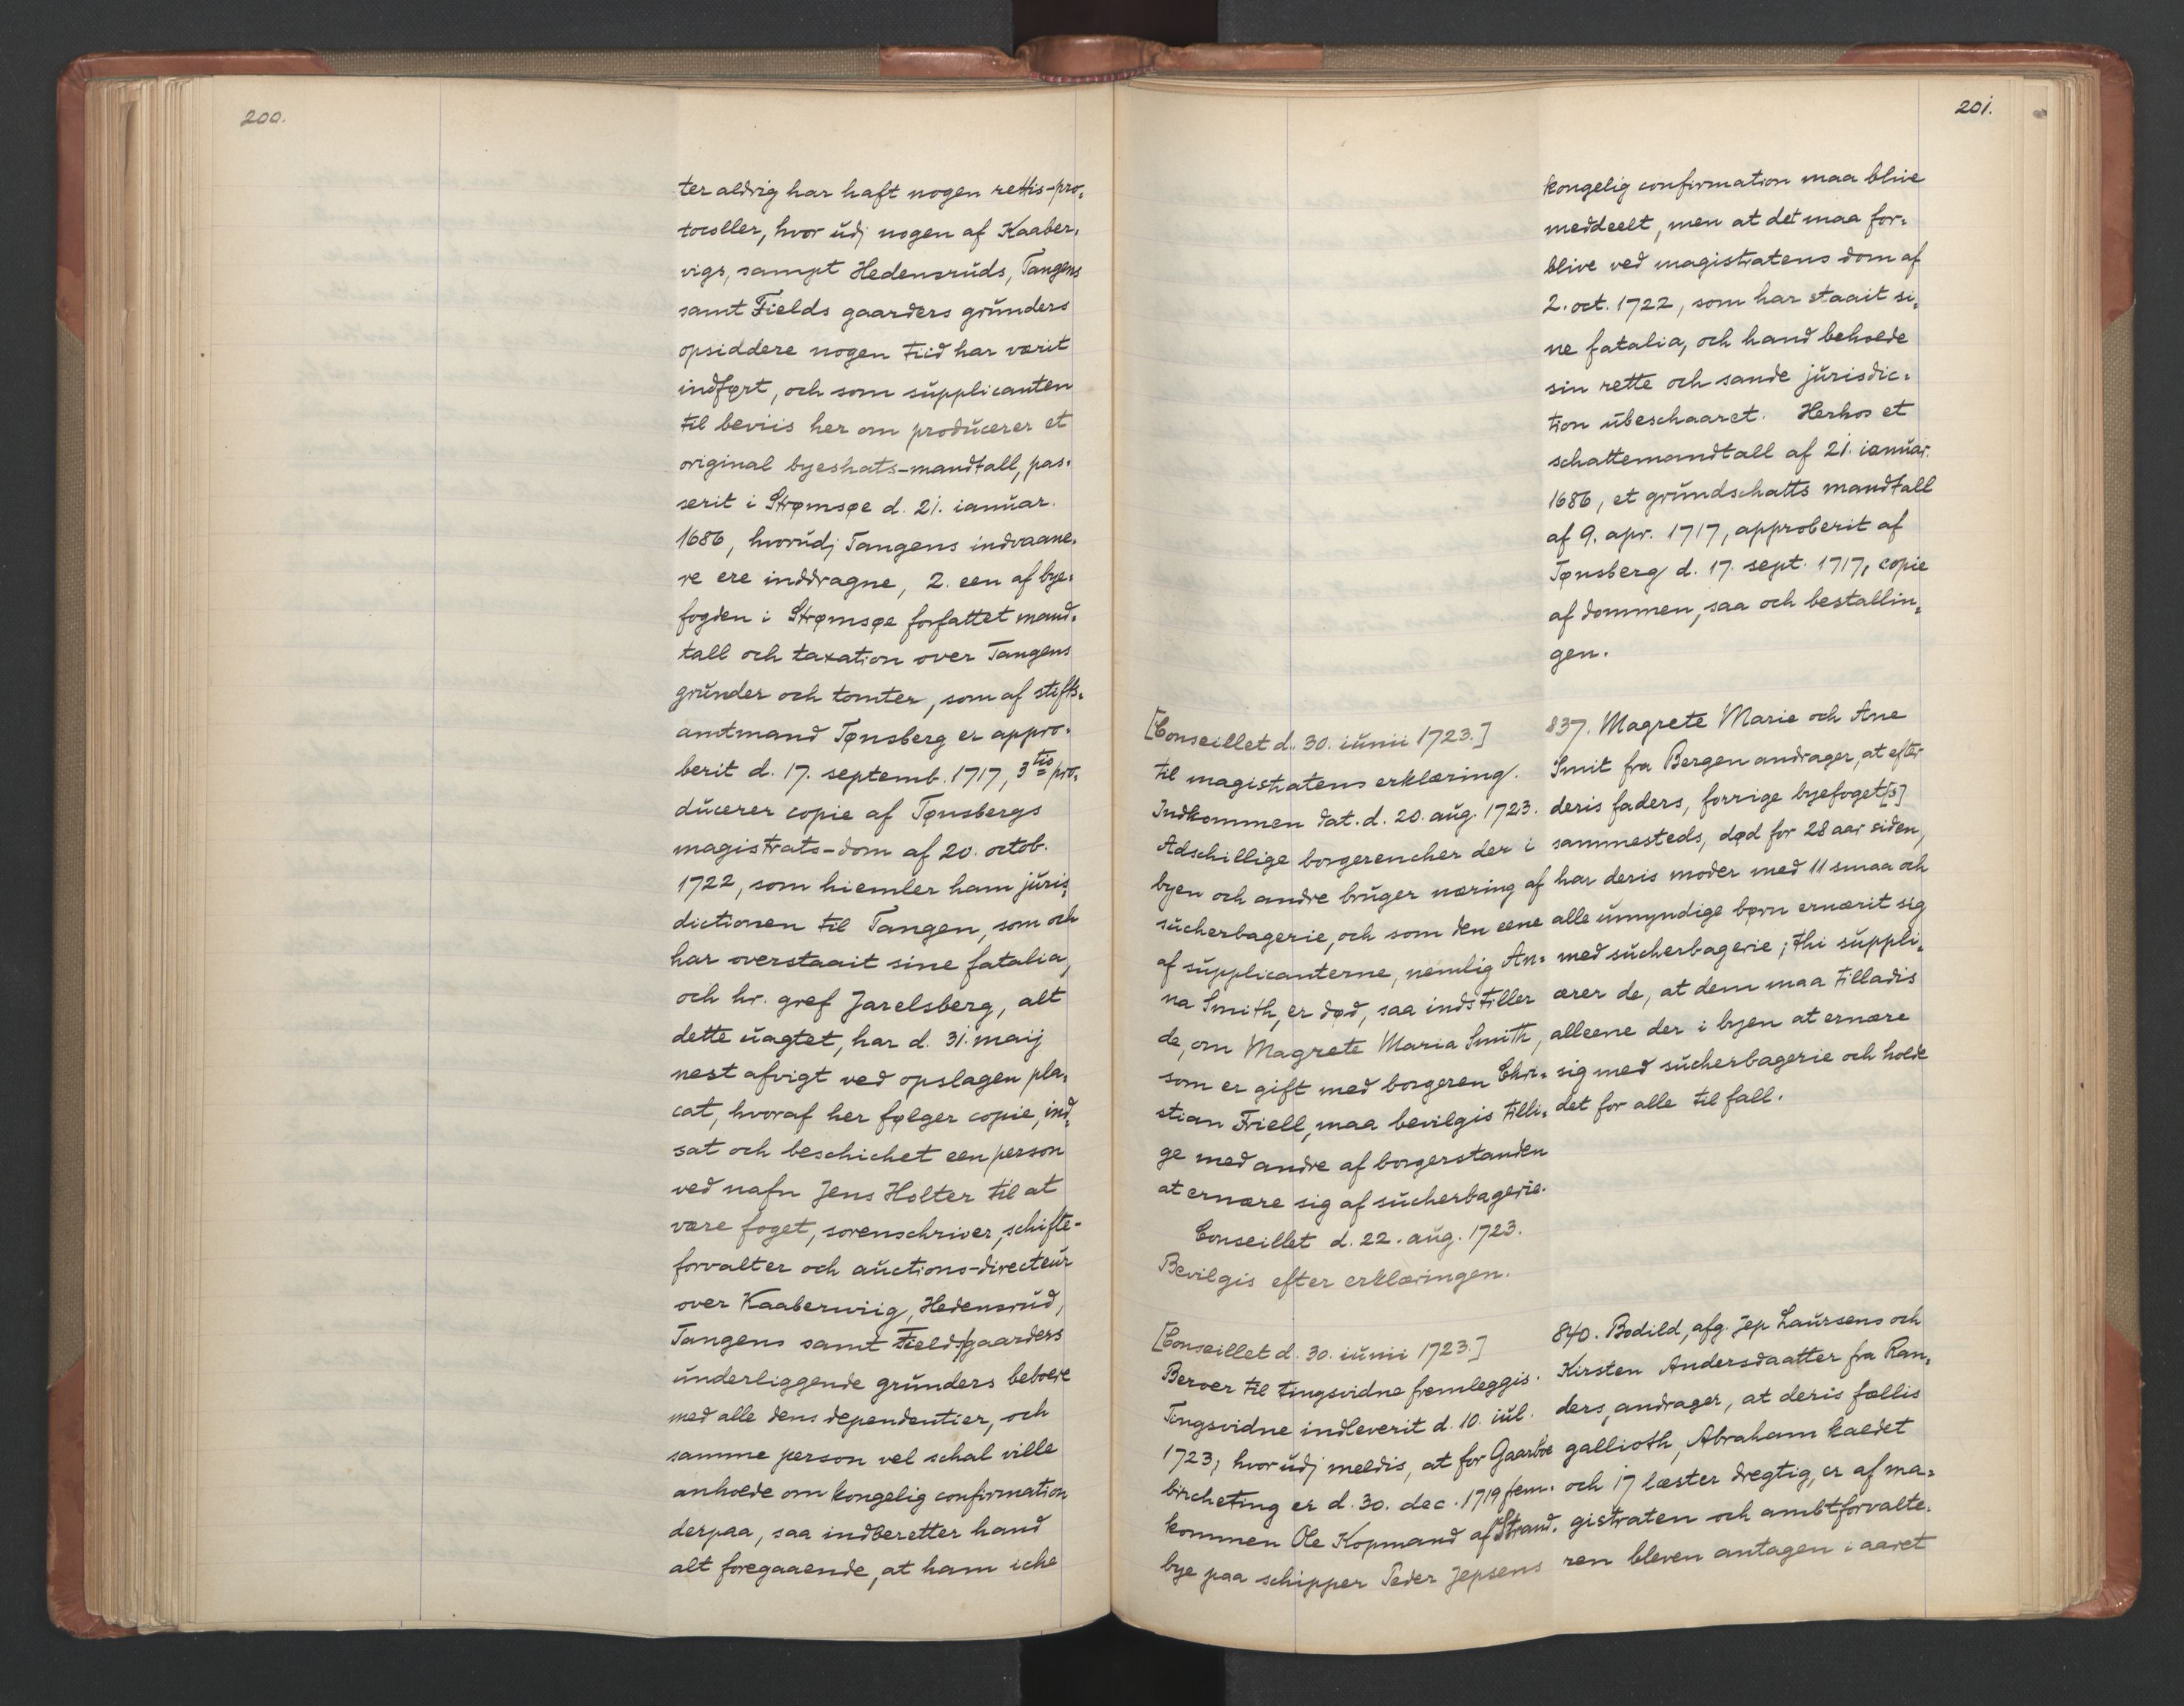 200.
ter aldrig har haft nogen rettis-pro,
tocoller, hvor udj nogen af Kaaber,
vigs, sampt Hedensruds, Tangens
samt Fields gaarders grunders
opsiddere nogen tiid harværit
indført, och som supplicanten
til beviis her om producerer et
original byeskats-mandtall, pas,
serit i Strømsøe d. 21. ianuar.
1686, hvorudj Tangens indvaane,
re ere inddragne, 2. een af bye,
fogden i Strømsøe forfattet mand,
tall och taxation over Tangens
grunder och tomter, som af stifts,
amtmand Tønsberg er appro,
berit d. 17. septemb. 1717, 3tio pro,
ducerer copie af Tønsbergs
magistrats-dom af 20. octob.
1722, som hiemler ham juris,
dictionen til Tangen, som och
har overstaait sine fatalia,
och hr. gref Jarelsberg, alt
dette uagtet, har d. 31. maij
nest afvigt ved opslagen pla,
cat, hvoraf her følger copie, ind,
sat och beschichet een person
ved nafn Jens Holter til at
være foget, sorenschriver, schifte-
forvalter och auctions-directeur
over Kaaberwiig, Hedensrud,
Tangens samt Fields gaarders
underliggende grunders beboere
med alle dens dependentier, och
samme person vel schal ville
anholde om kongelig confirmation
derpaa, saa indberetter hand
alt foregaaende, at ham iche
201.
kongelig confirmation maa blive
meddeelt, men at det maa for,
blive ved magistratens dom af
2. oct. 1722, som har staait si,
ne fatalia, och hand beholde
sin rette och sande jurisdic,
tion ubeschaaret. Herhos et
schattemandtall af 21. ianuar.
1686, et grundschatts mandtall
af 9. apr. 1717, approberit af
Tønsberg d. 17. sept. 1717, copie
af dommen, saa och bestallin,
gen.
[Conseillet d. 30. iunii 1723.]
til magistratens erklæring.
Indkommen dat. d. 20. aug. 1723.
Adschillige borgerencher der i
byen och andre bruger næring af
sucherbagerie, och som den eene
af supplicanterne, nemlig An,
na Smith, er død, saa indstiller
de, om Magrete Maria Smith,
som er gift med borgeren Chri,
stian Friell, maa bevilgis tilli,
ge med andre af borgerstanden
at ernære sig af sucherbagerie.
Conseillet d. 22. aug. 1723.
Bevilgis efter erklæringen.
837. Magrete Marie och Ane
Smit fra Bergen andrager, at efter
deris faders, forrige byefoget[s]
sammesteds, død for 28 aar siden,
har deris moder med 11 smaa och
alle umyndige børn ernærit sig
med sucherbagerie; thi suppli,
cerer de, at dem maa tilladis
alleene der i byen at ernære
sig med sucherbagerie och holde
det for alle til fall.
[Conseillet d. 30. iunii 1723.]
Beroer til tingsvidne fremleggis.
Tingsvidne indleverit d. 10. iul.
1723, hvorudj meldis, at for Gaarboe
bircheting er d. 30. dec. 1719 frem,
kommen Ole Kopmand af Strand,
bye paa schipper Peder Jepsens
840. Bodild, afg. Jep Laursens och
Kirsten Andersdaatter fra Ran,
ders, andrager, at deris fællis
gallioth, Abraham kaldet
och 17 læster dregtig, er af ma,
gistraten och ambtforvalte,
ren bleven antagen i aaret